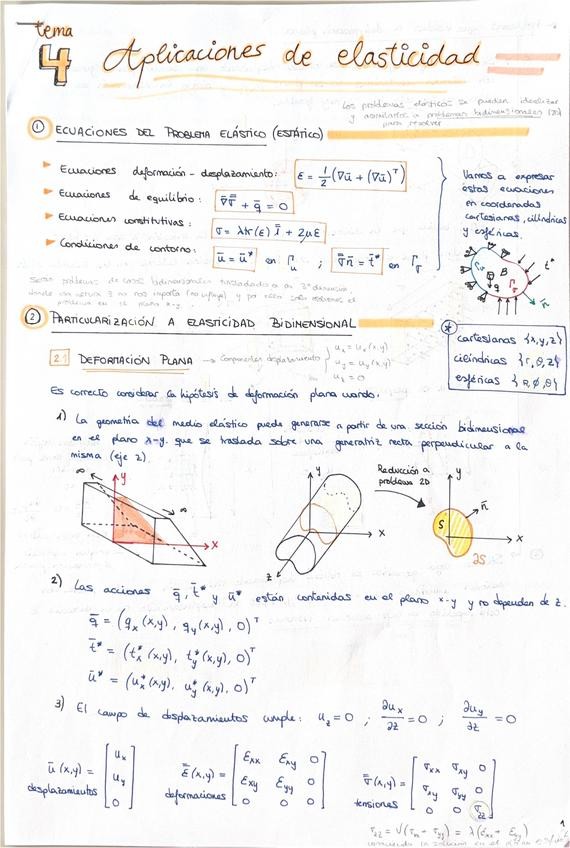 tema
4
Aplicaciones de elasticidad
Los problemas elásticos se pueden idealizar
y asimilarlos a problemas bidimensionales (2D)
para resolver
① ECUACIONES DEL PROBLEMA ELÁSTICO (ESTÁTICO)
Ecuaciones deformación - desplazamiento: ε = 1/2 (∇ū + (∇ū)ᵀ)
Ecuaciones de equilibrio: ∇σ̿ + q̄ = 0
Ecuaciones constitutivas: σ = λtr(ε) I̿ + 2με
Condiciones de contorno: ū = ū* en Γu ; σ̿n̄ = t̄* en Γσ
Vamos a expresar
estas ecuaciones
en coordenadas
cartesianas, cilíndricas
y esféricas.
Γu B t* q Γσ n̄
Serán problemas de casos bidimensionales trasladados a la 3ª dimensión,
donde esa altura 3 no nos importa (no influye) y por eso solo
problema en el plano x-y
② PARTICULARIZACIÓN A ELASTICIDAD BIDIMENSIONAL
* cartesianas {x,y,z}
cilíndricas {r,θ,z}
esféricas {R,φ,θ}
2.1 DEFORMACIÓN PLANA → Componentes desplazamiento { ux = ux(x,y)
uy = uy(x,y)
uz = 0
Es correcto considerar la hipótesis de deformación plana cuando:
1) La geometría del medio elástico puede generarse a partir de una sección bidimensional
en el plano x-y que se traslada sobre una generatriz recta perpendicular a la
misma (eje z).
∞ y ∞ x
y x z
Reducción a
problema 2D
y S n̄ x ∂S
2) Las acciones q̄, t̄* y ū* están contenidas en el plano x-y y no dependen de z.
q̄ = (qx(x,y), qy(x,y), 0)ᵀ
t̄* = (tx*(x,y), ty*(x,y), 0)ᵀ
ū* = (ux*(x,y), uy*(x,y), 0)ᵀ
3) El campo de desplazamientos cumple: uz = 0 ; ∂ux/∂z = 0 ; ∂uy/∂z = 0
ū(x,y) = [ux uy 0]
desplazamientos
ε̿(x,y) = [εxx εxy 0 εxy εyy 0 0 0 0]
deformaciones
σ̿(x,y) = [σxx σxy 0 σxy σyy 0 0 0 σzz]
tensiones
σzz = ν(σxx + σyy) = λ(εxx + εyy)
1